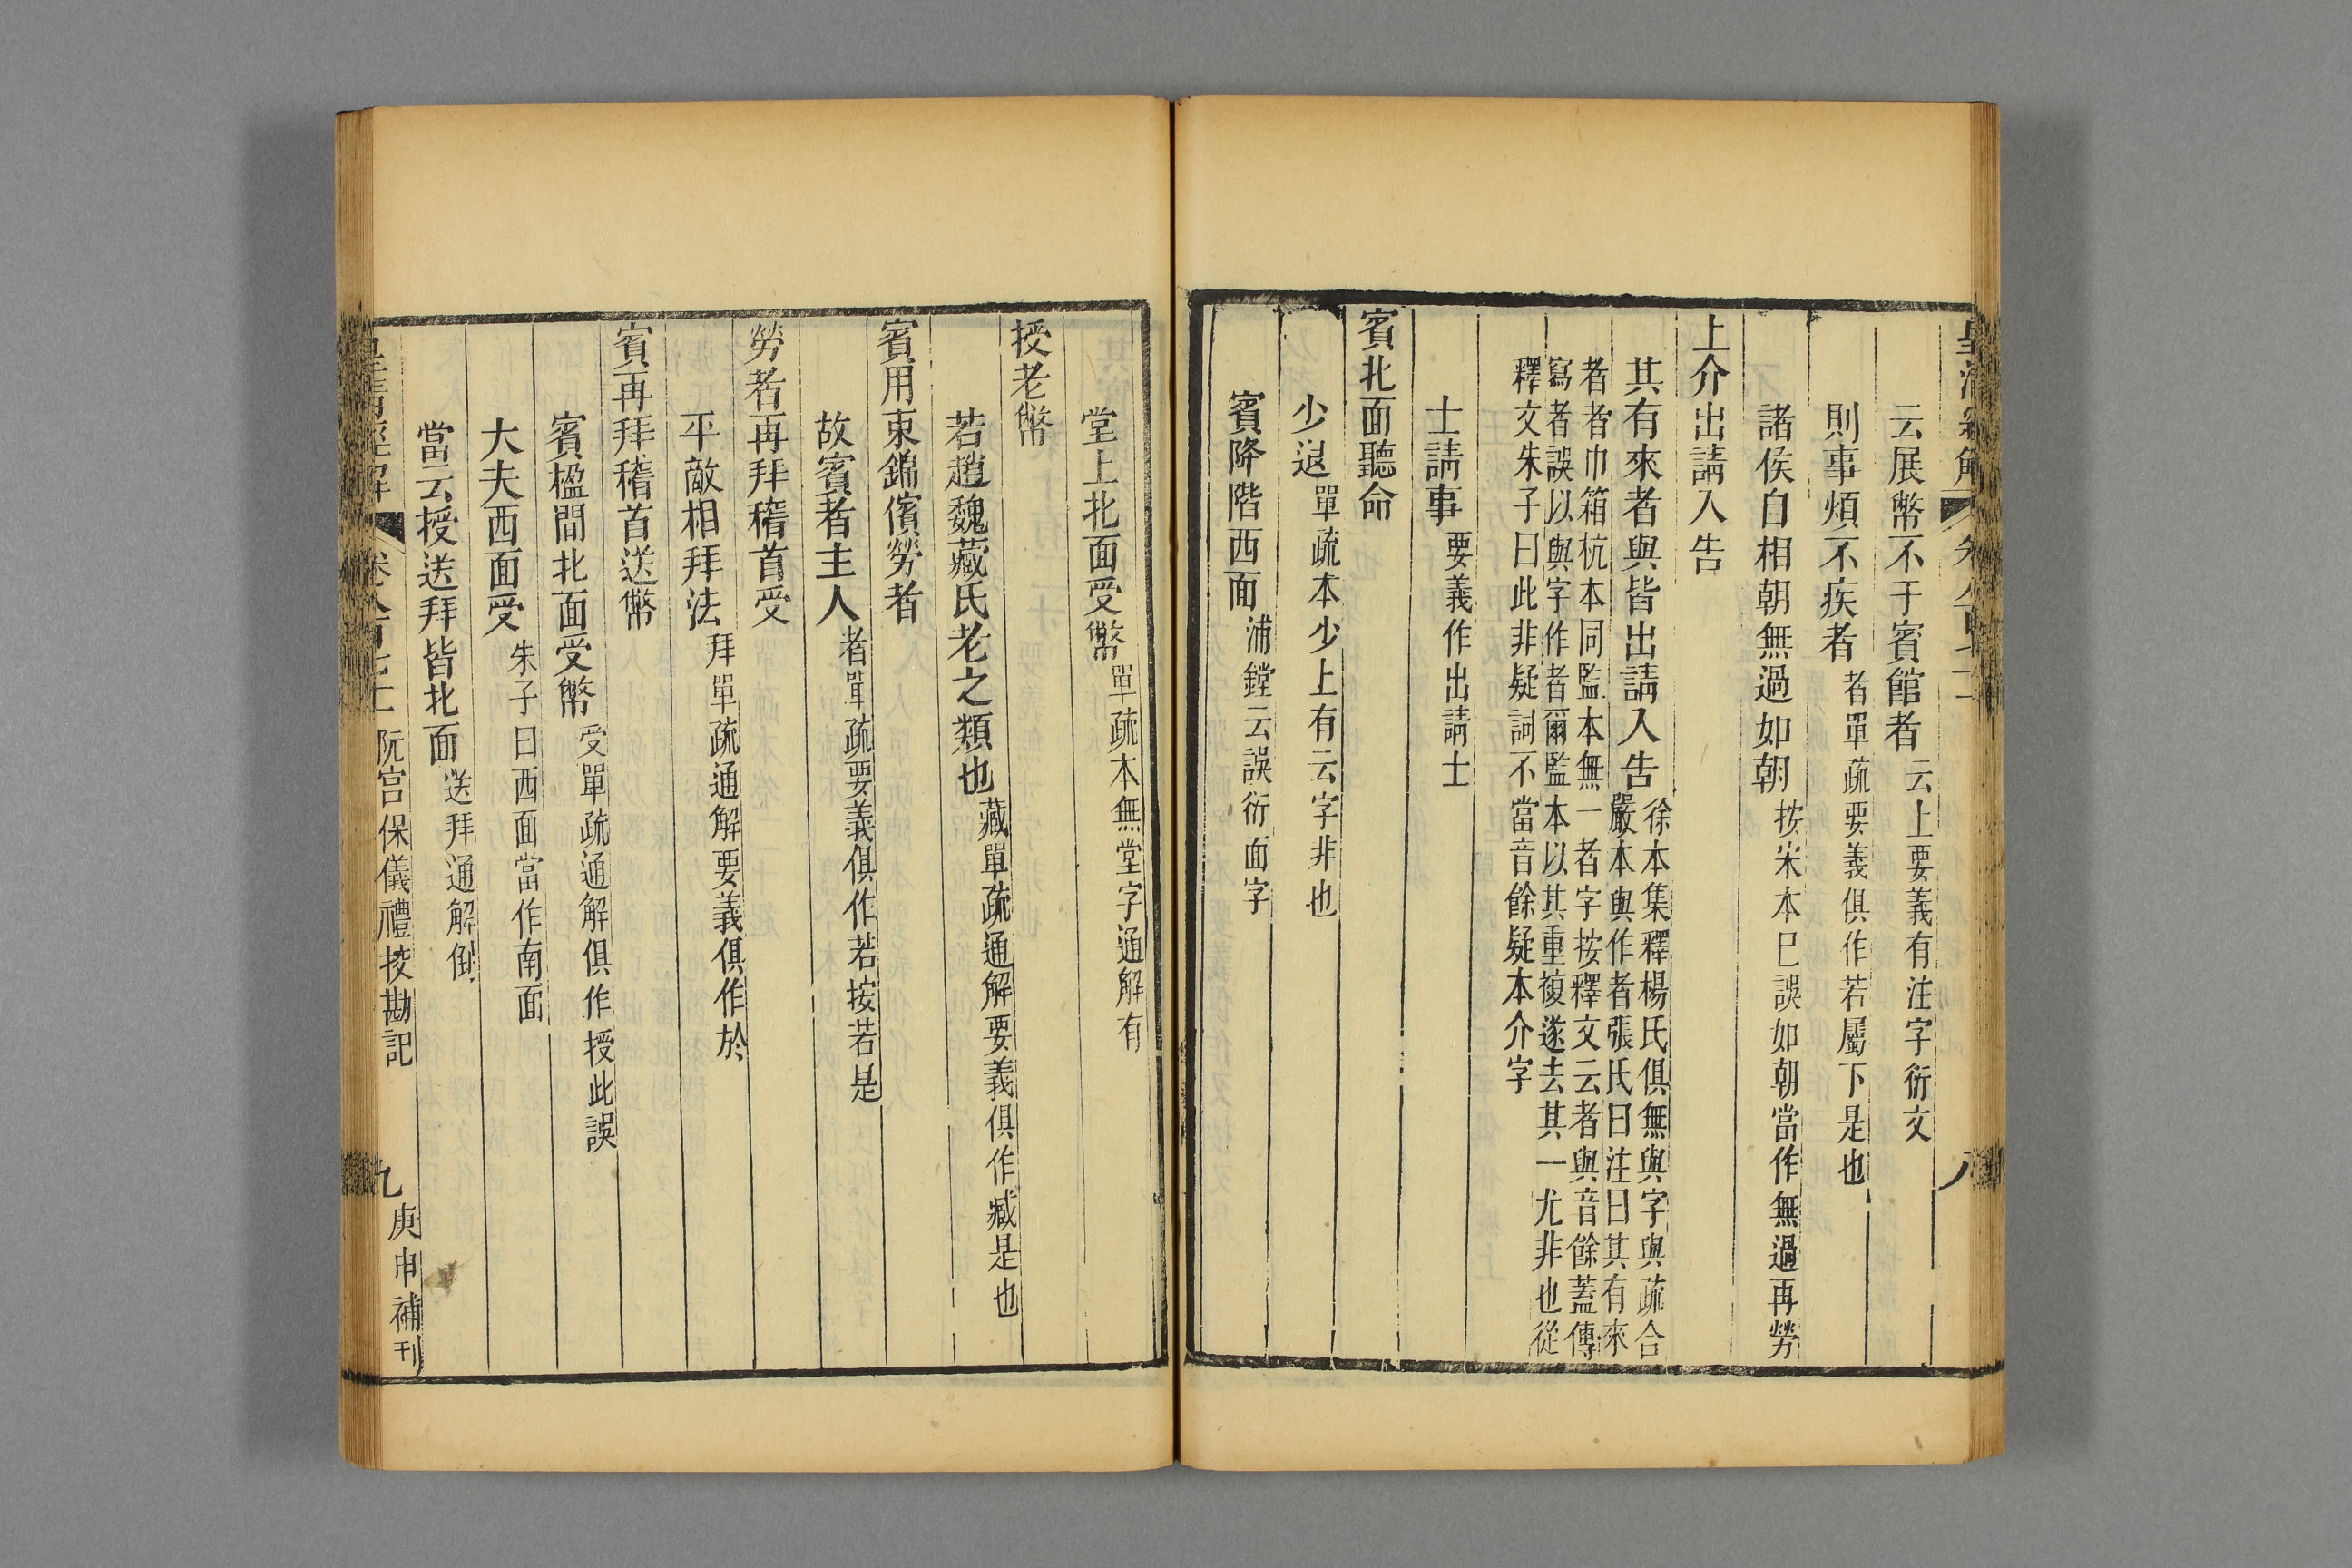 云展幣不于賓館者云上要義有注字衍文
則事煩不疾者者單疏要義俱作若屬下是也
諸侯自相朝無過如朝按宋本巳誤如朝當作無過再勞
上介出請入告
其有來者與皆出請入告徐本集釋楊氏俱無與字與疏合
嚴本與作者張氏曰注曰其有來
者者巾箱杭本同監本無一者字按釋文云者與音餘蓋傳
寫者誤以與字作者爾監本以其重複遂去其一尤非也從
釋文朱子曰此非疑詞不當音餘疑本介字
士請事要義作出請士
賓北面聽命
少退單疏本少上有云字非也
賓降階西面浦鏜云誤衍面字
堂上北面受幣單疏本無堂字通解有
授老幣
若趙魏藏氏老之類也藏單疏通解要義俱作臧是也
賓用束錦儐勞者
故賓者主人者單疏要義俱作若按若是
勞者再拜稽首受
平敵相拜法拜單疏通解要義俱作於
賓再拜稽首送幣
賓楹間北面受幣受單疏通解俱作授此誤
大夫西面受朱子曰西面當作南面
當云授送拜皆北面送拜通解倒
皇清經解 卷八百七十一 阮宮保儀禮挍勘記 九 庚申補刊